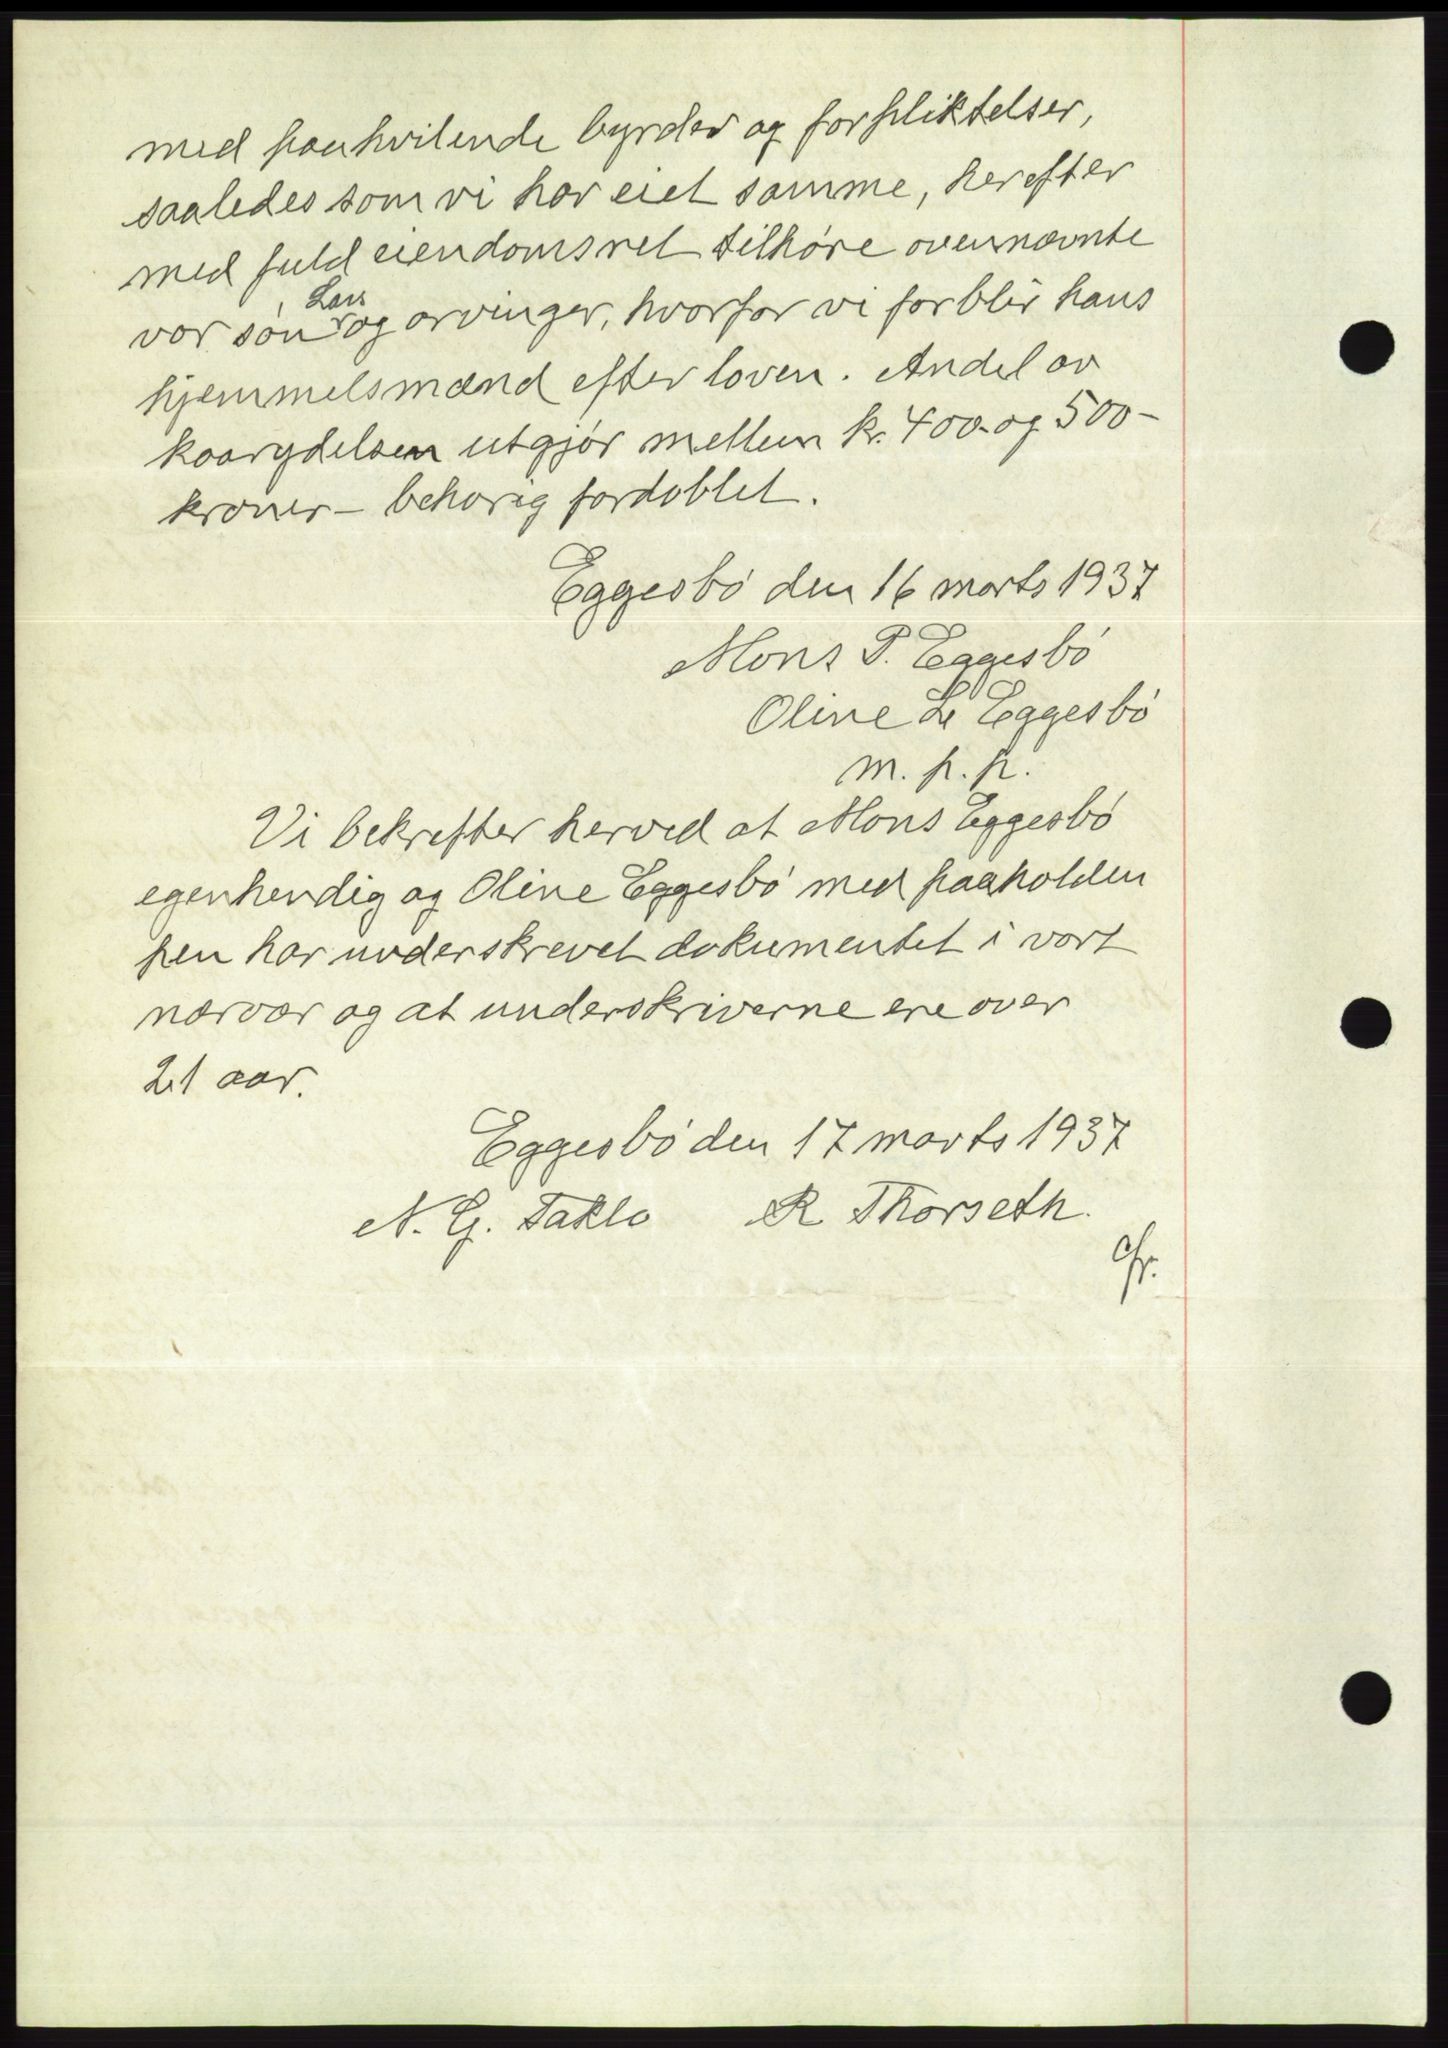 med paahvilende byrder og forpliktelser,
saaledes som vi har eiet samme, herefter
med fuld eiendomsret tilhøre ovennævnte
vor søn Lars og arvinger, hvorfor vi forblir hans
hjemmelsmænd efter loven. Andel av
kaarydelsen utgjør mellem kr. 400.- og 500-
kroner - behørig fordoblet.
Eggesbø den 16 marts 1937
Mons P. Eggesbø
Oline L. Eggesbø
m. p. p.
Vi bekrefter herved at Mons Eggesbø
egenhendig og Oline Eggesbø med paaholden
pen har underskrevet dokumentet i vort
nærvær og at underskriverne ere over
21 aar.
Eggesbø den 17 marts 1937
N. G. Taklo R Thorseth.